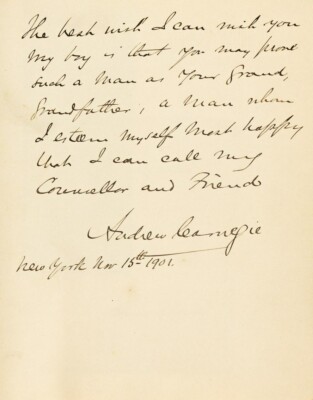 The best wish I can wish you
my boy is that you may prove
such a man as your Grand,
Grandfather, a man whom
I esteem myself most happy
that I can call my
Counsellor and Friend
Andrew Carnegie
New York Nov 15th 1901.